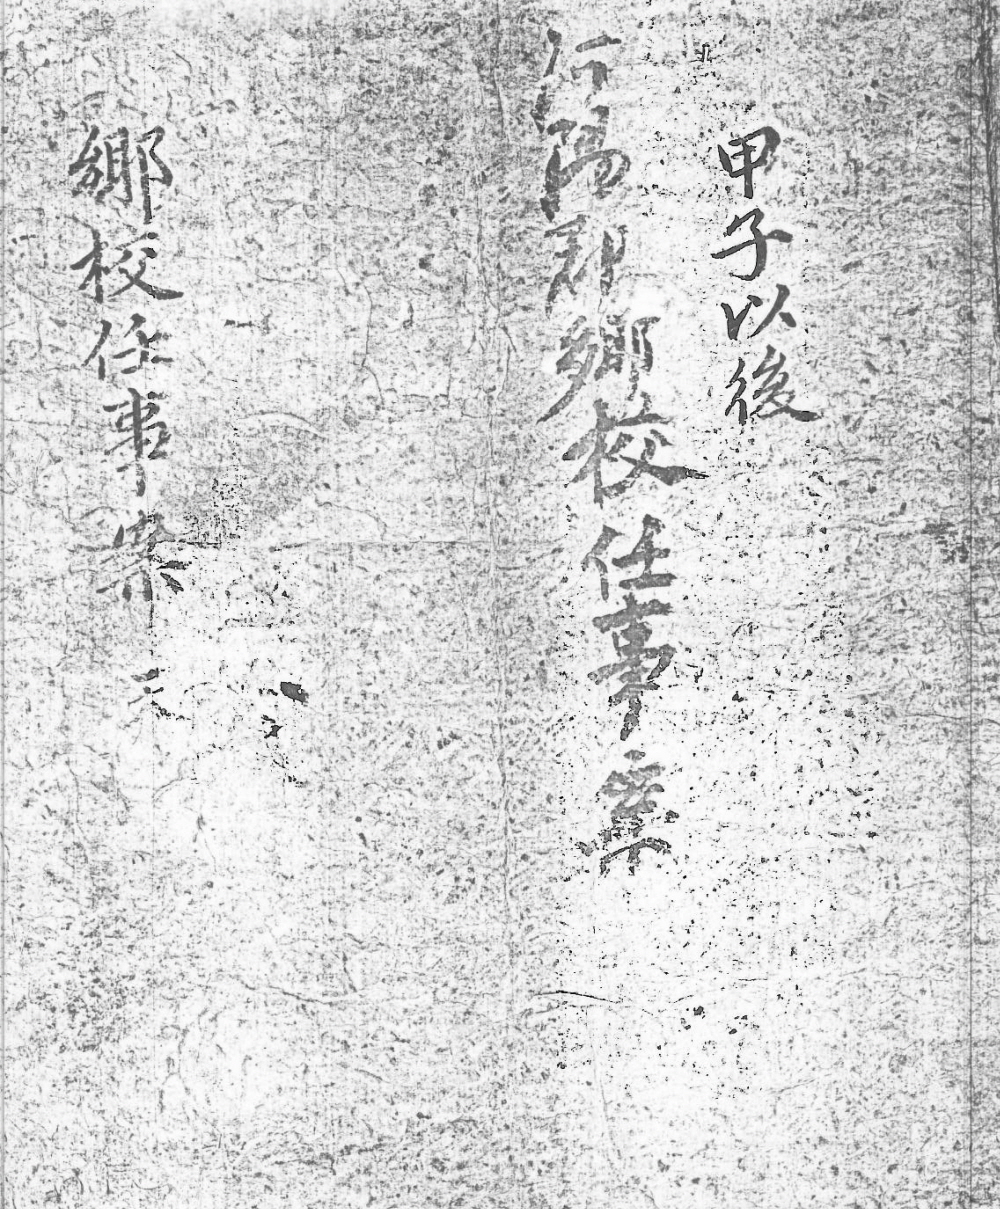 甲子以後
陽郡鄉校任事案
鄉校任事案